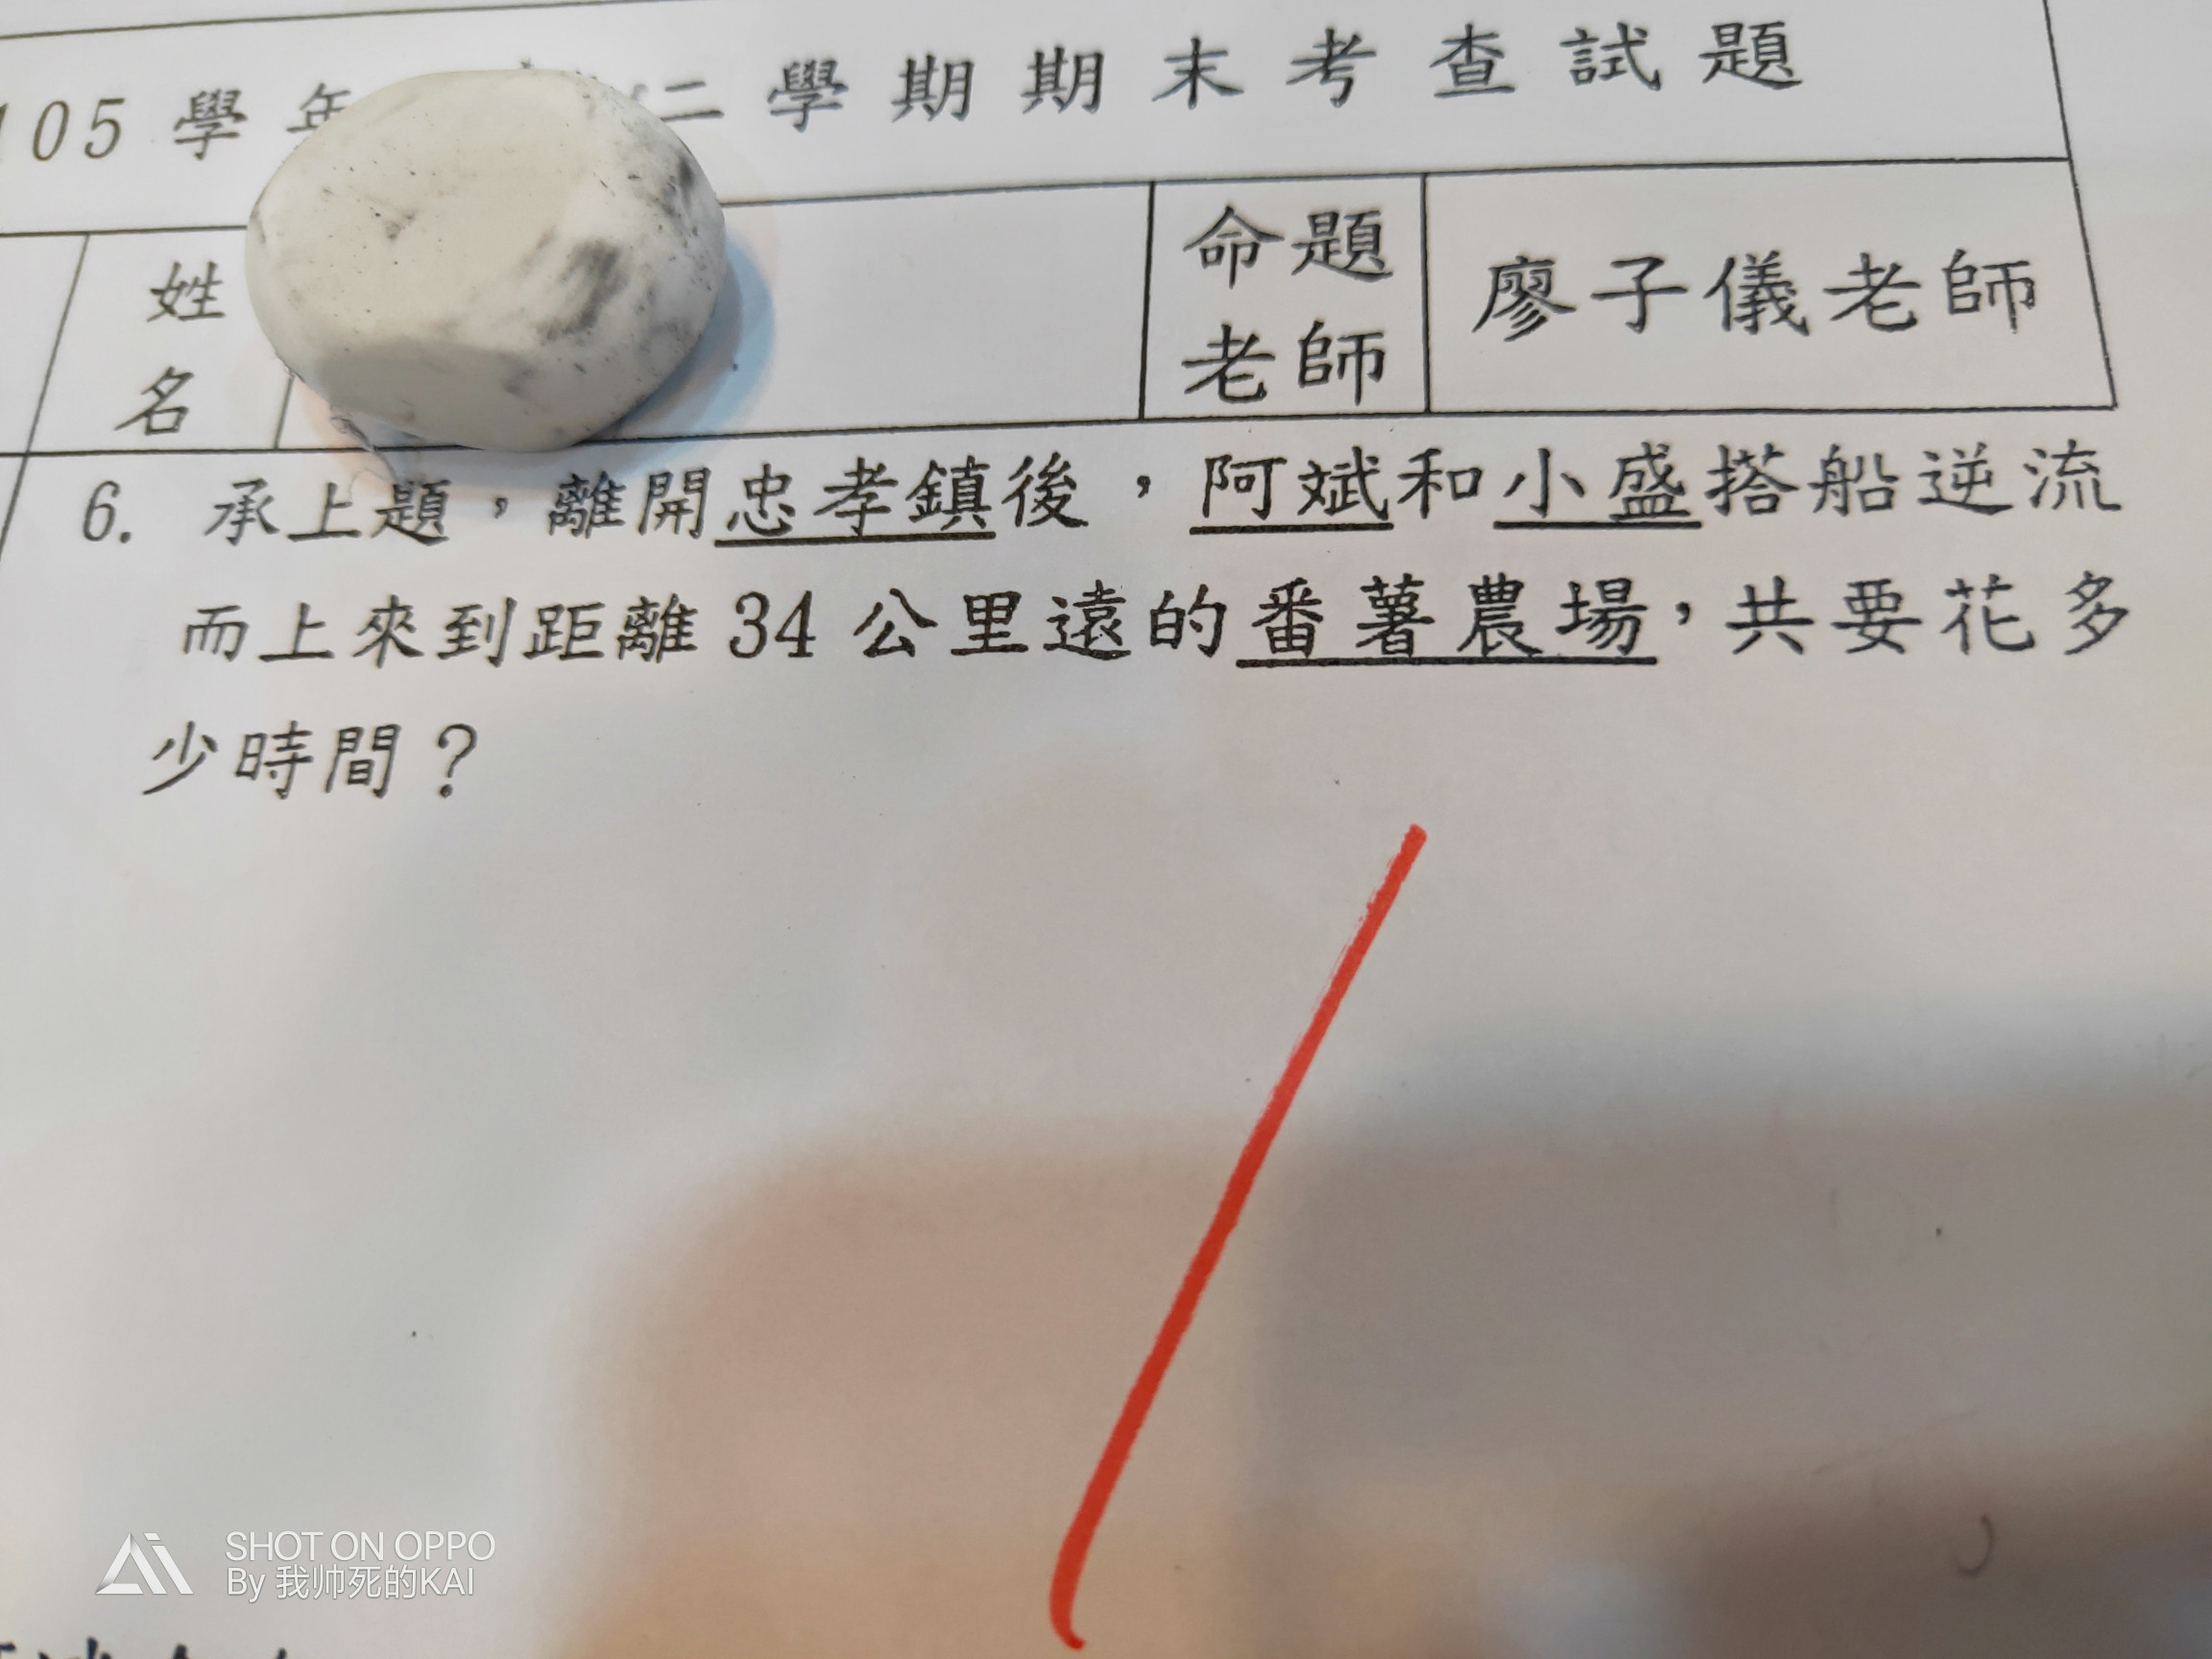 105學年 二學期期末考查試題
姓名
命題老師
廖子儀老師
6. 承上題，離開忠孝鎮後，阿斌和小盛搭船逆流
而上來到距離34公里遠的番薯農場，共要花多
少時間？
SHOT ON OPPO
By 我帅死的KAI